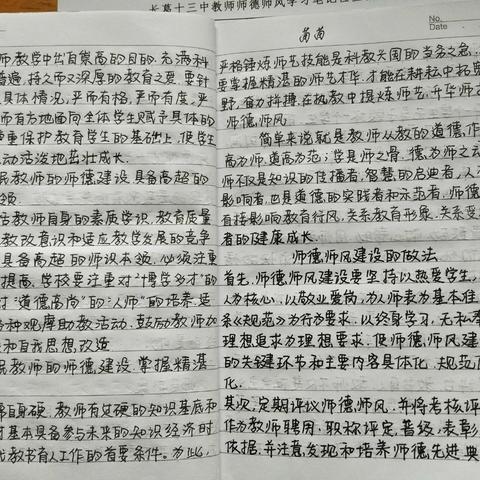 长葛十三中教师师德师风学习笔记
No.
Date
师教学中出自崇高的目的.充满科
普遍,持久而又深厚的教育之爱.要针
具体情况,严而有格,严而有度,严
而有方地面向全体学生赋予具体的
尊重保护教育学生的基础上,使学生
动活泼地茁壮成长.
展教师的师德建设具备高超的
领
括教师自身的素质学识,教育质量
教改意识和适应教学发展的竞争
具备高超的师识本领,必须注重
提高.学校要注重对“博学多才”的
对“道德高尚”的“人师”的培养.运
各种观摩助教活动.鼓励教师加
和自我思想改造
展教师的师德建设.掌握精湛
需自身硬.教师有过硬的知识基底和
才基本具备参与未来的知识经济时
代教书育人工作的首要条件.为此,
严格锤炼师艺技能是科教兴国的当务之急.
要掌握精湛的师艺才华.才能在耕耘中拓
野,奋力拼搏,在执教中提炼师艺,升华师
师德,师风.
简单来说就是教师从教的道德,作
高为师,道高为范;学是师之骨.德为师之
师不仅是知识的传播者,智慧的启迪者,人
影响者.也是道德的实践者和示范者.师德
直接影响教育行风,关系教育形象.关系受
者的健康成长.
师德师风建设的做法
首先,师德师风建设要坚持以热爱学生,
人为核心,以敬业爱岗,为人师表为基本准
条《规范》为行为要求.以终身学习.无私奉
理想追求为理想要求.使师德师风建
的关键环节和主要内容具体化,规范
化.
其次,定期评议师德师风,并将考核评
作为教师聘用.职称评定,晋级,表彰
依据,并注意发现和培养师德先进典